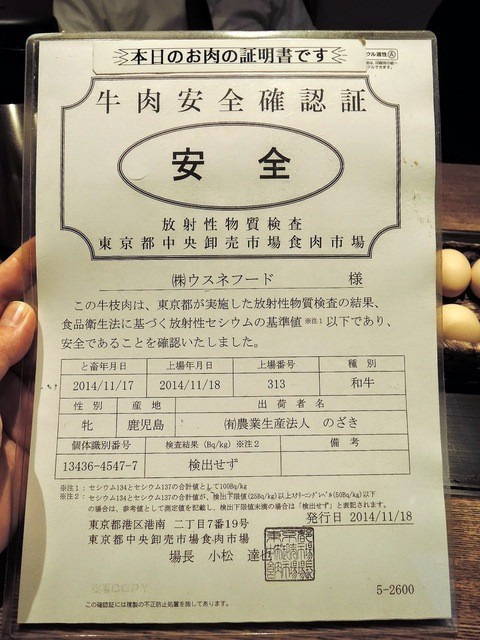 本日のお肉の証明書です
牛肉安全確認証
安全
放射性物質検査
東京都中央卸売市場食肉市場
㈱ウスネフード 様
この牛枝肉は、東京都が実施した放射性物質検査の結果、
食品衛生法に基づく放射性セシウムの基準値※注1以下であり、
安全であることを確認いたしました。
と畜年月日 上場年月日 上場番号 種別
2014/11/17 2014/11/18 313 和牛
性別 産地 出荷者名
牝 鹿児島 ㈲農業生産法人 のざき
個体識別番号 検査結果(Bq/kg)※注2 備考
13436-4547-7 検出せず
※注1:セシウム134とセシウム137の合計値として100Bq/kg
※注2:セシウム134とセシウム137の合計値が、検出下限値(25Bq/kg)以上スクリーニングレベル(50Bq/kg)以下
の場合は、参考値として測定値を記載し、検出下限値未満の場合は「検出せず」と表記されます。
発行日 2014/11/18
東京都港区港南 二丁目7番19号
東京都中央卸売市場食肉市場
場長 小松 達也
5-2600
この確認証には複製の不正防止処置を施してあります。